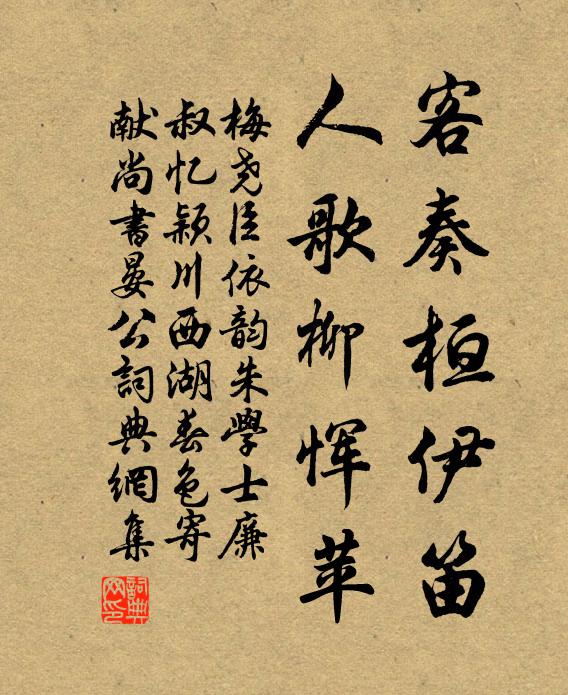 客奏桓伊笛
人歌柳恽苹
梅尧臣依韵朱學士廉
叔忆颍川西湖春色寄
献尚書晏公詞典網集
詞典
网印